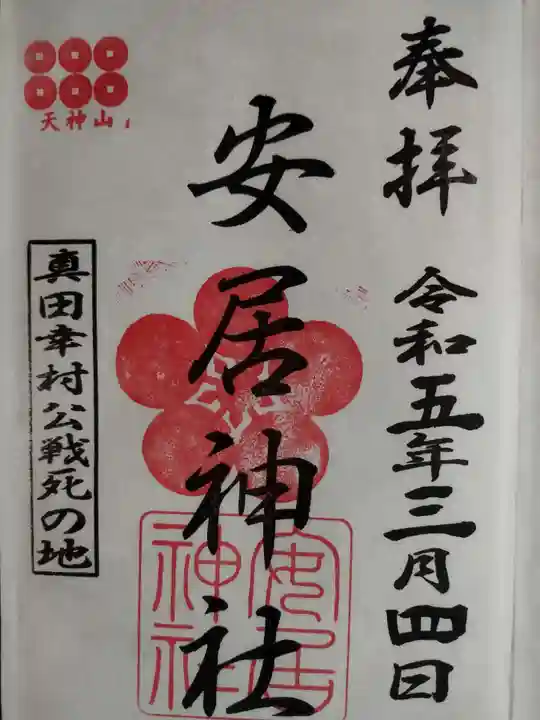 奉拝
令和五年三月四日
安居神社
安居
神社
天神山
真田幸村公戦死の地